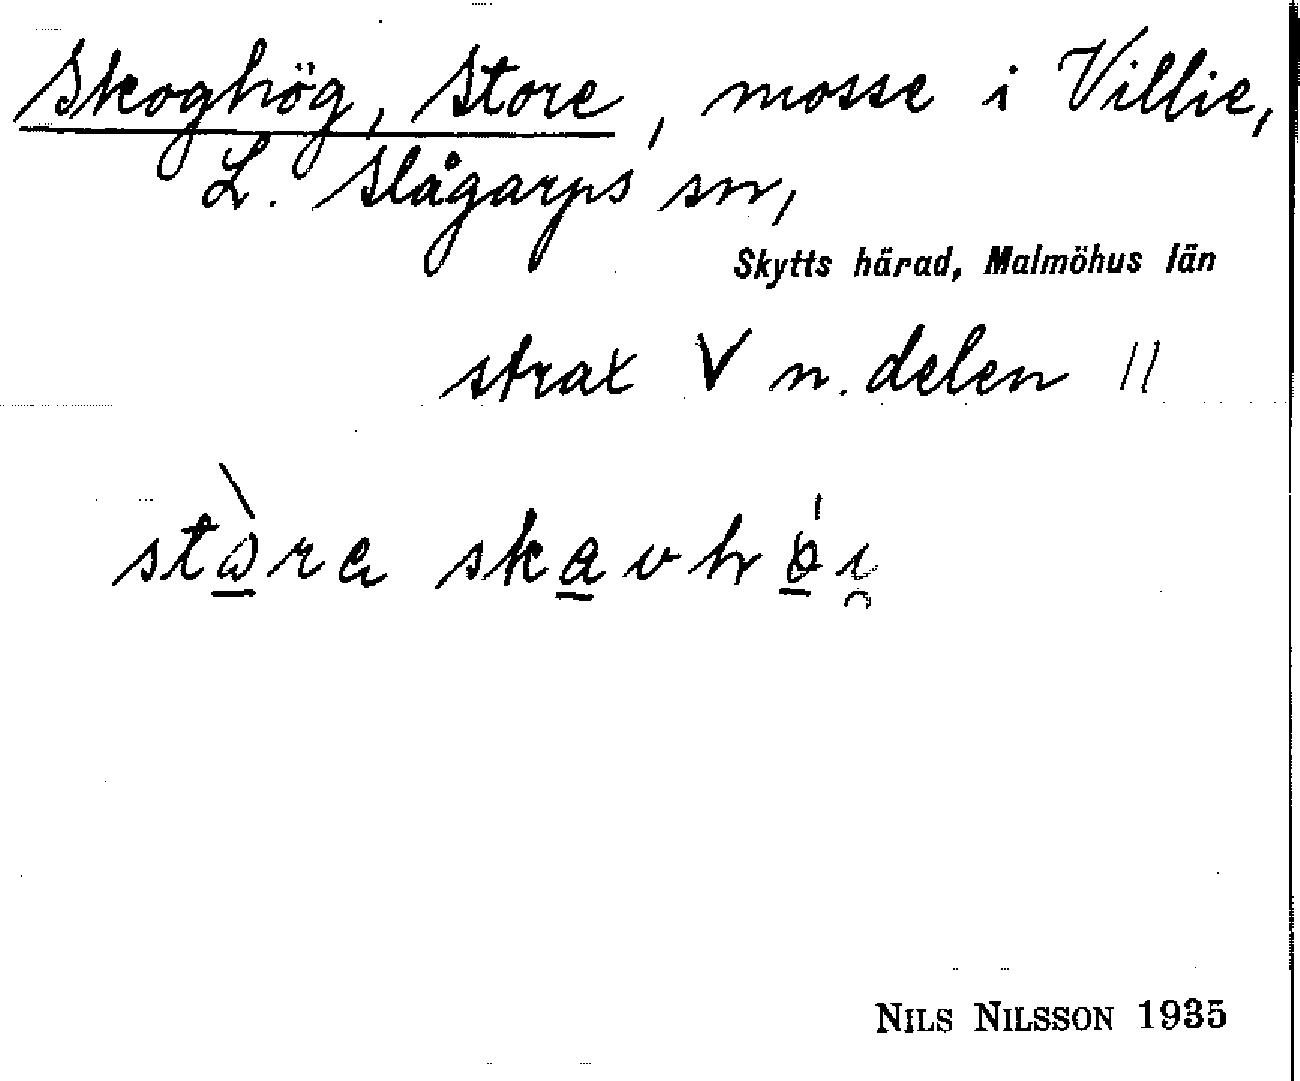 Skoghög, Store, mosse i Villie,
L. Slågarps sn,
Skytts härad, Malmöhus län
strax V n. delen //
stòra skavhǿi̯
NILS NILSSON 1935